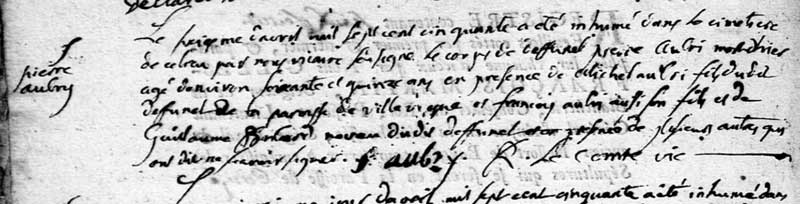 Le seizieme d'avril mil sept cent cinquante a été inhumé dans le cimetiere
de ce lieu par nous vicaire soussigné le corps de deffunct pierre Aubri mort d'hier
pierre
aubry
agé d'environ soixante et quinze ans en presence de Michel aubri fils dudit
deffunct de la paroisse de et francois aubri aussi son fils et de
Guillaume neveu dudit deffunct et en presence de plusieurs autres qui
ont dit ne savoir signer. f. aubry. R. Le Comte vic
d'avril mil sept cent cinquante a été inhumé dans